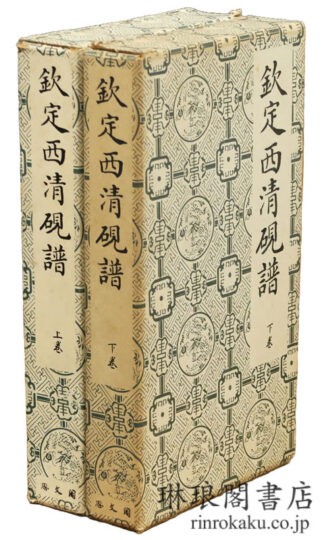 欽定西清硯譜
上卷
啓文閣
欽定西清硯譜
下卷
啓文閣
欽定西清硯譜
下卷
琳琅閣書店
rinrokaku.co.jp